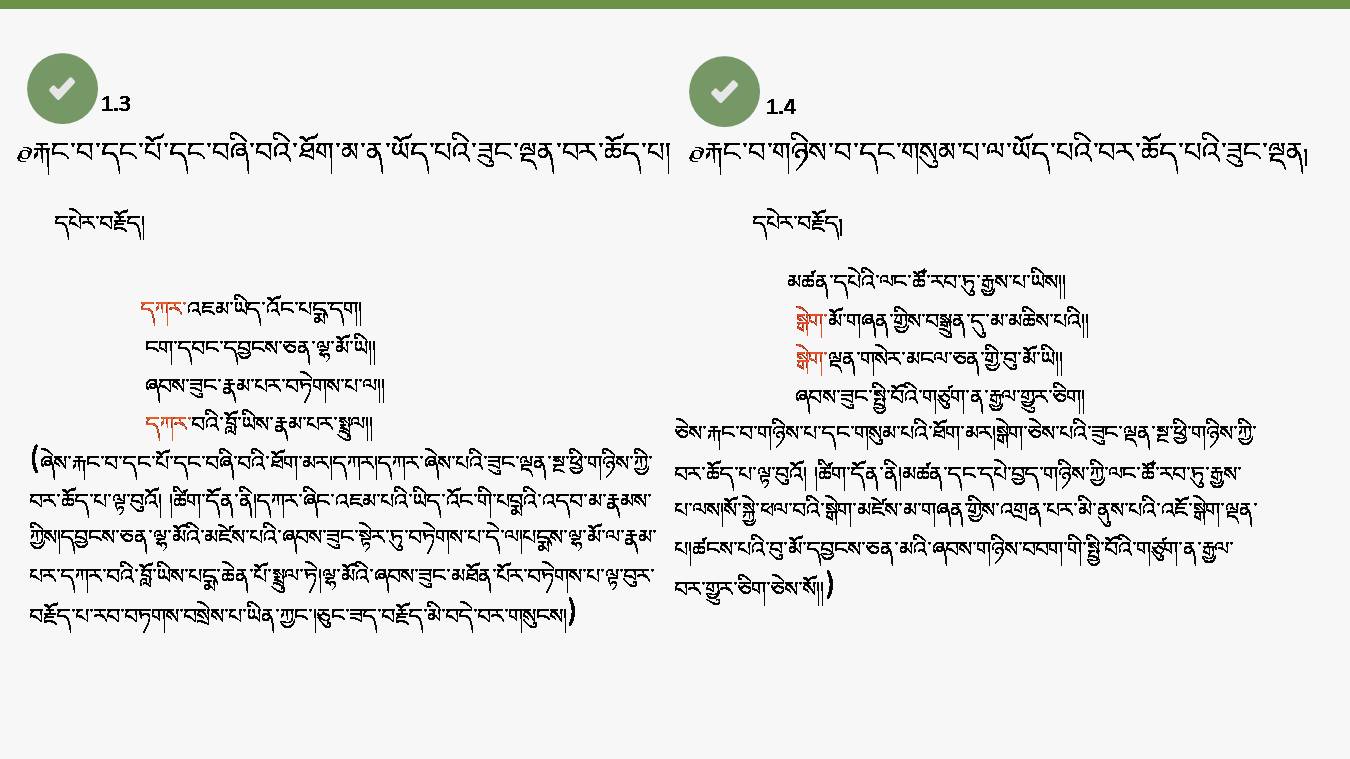 1.3
༧རྐང་བ་དང་པོ་དང་བཞི་བའི་ཐོག་མ་ན་ཡོད་པའི་ཟུང་ལྡན་བར་ཆོད་པ།
དཔེར་བརྗོད།
དཀར་འཇམ་ཡིད་འོང་པདྨ་དག།
ངག་དབང་དབྱངས་ཅན་ལྷ་མོ་ཡི།།
ཞབས་ཟུང་རྣམ་པར་བཏེགས་པ་ལ།།
དཀར་བའི་བློ་ཡིས་རྣམ་པར་སྤྲུལ།།
(ཞེས་རྐང་བ་དང་པོ་དང་བཞི་བའི་ཐོག་མར།དཀར།དཀར་ཞེས་པའི་ཟུང་ལྡན་སྔ་ཕྱི་གཉིས་ཀྱི་
བར་ཆོད་པ་ལྟ་བུའོ། །ཚིག་དོན་ནི།དཀར་ཞིང་འཇམ་པའི་ཡིད་འོང་གི་པདྨའི་འདབ་མ་རྣམས་
ཀྱིས།དབྱངས་ཅན་ལྷ་མོའི་མཛེས་པའི་ཞབས་ཟུང་སྟེར་ཏུ་བཏེགས་པ་དེ་ལ།པདྨས་ལྷ་མོ་ལ་རྣམ་
པར་དཀར་བའི་བློ་ཡིས་པདྨ་ཆེན་པོ་སྤྲུལ་ཏེ།ལྷ་མོའི་ཞབས་ཟུང་མཐོན་པོར་བཏེགས་པ་ལྟ་བུར་
བརྗོད་པ་རབ་བཏགས་བསྲེས་པ་ཡིན་ཀྱང་།ཅུང་ཟད་བརྗོད་མི་བདེ་བར་གསུངས།)
1.4
༧རྐང་བ་གཉིས་བ་དང་གསུམ་པ་ལ་ཡོད་པའི་བར་ཆོད་པའི་ཟུང་ལྡན།
དཔེར་བརྗོད།
མཚན་དཔེའི་ལང་ཚོ་རབ་ཏུ་རྒྱས་པ་ཡིས།།
སྒེག་མོ་གཞན་གྱིས་བསྒྲུན་དུ་མ་མཆིས་པའི།།
སྒེག་ལྡན་གསེར་མངལ་ཅན་གྱི་བུ་མོ་ཡི།།
ཞབས་ཟུང་སྤྱི་བོའི་གཙུག་ན་རྒྱལ་གྱུར་ཅིག།
ཅེས་རྐང་བ་གཉིས་པ་དང་གསུམ་པའི་ཐོག་མར།སྒེག་ཅེས་པའི་ཟུང་ལྡན་སྔ་ཕྱི་གཉིས་ཀྱི་
བར་ཆོད་པ་ལྟ་བུའོ། །ཚིག་དོན་ནི།མཚན་དང་དཔེ་བྱད་གཉིས་ཀྱི་ལང་ཚོ་རབ་ཏུ་རྒྱས་
པ་ལས།སོ་སྐྱེ་ཕལ་བའི་སྒེག་མཛེས་མ་གཞན་གྱིས་འགྲན་པར་མི་ནུས་པའི་འཇོ་སྒེག་ལྡན་
པ།ཚངས་པའི་བུ་མོ་དབྱངས་ཅན་མའི་ཞབས་གཉིས་བབག་གི་སྤྱི་བོའི་གཙུག་ན་རྒྱལ་
བར་གྱུར་ཅིག་ཅེས་སོ།།)